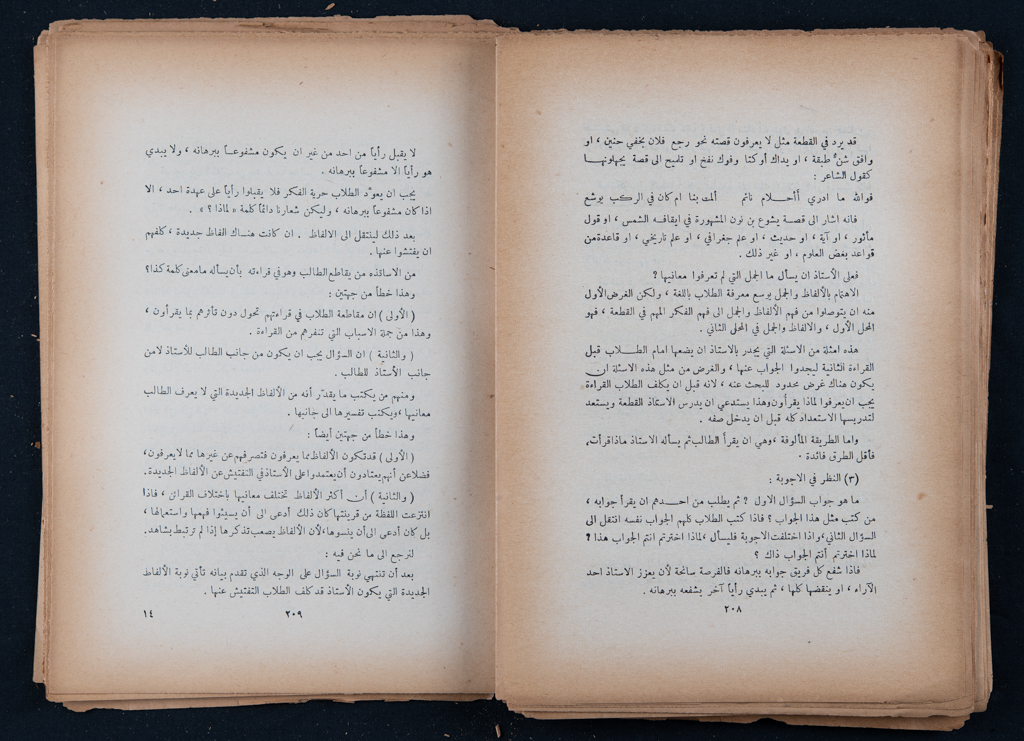 قد يرد في القطعة مثل لا يعرفون قصته نحو رجع فلان بخفي حنين ، او
وافق شنٌ طبقة ، او يداك أوكتا وفوك نفخ او تلميح الى قصة يجهلونهـا
كقول الشاعر :
فوالله ما ادري أأحـلام نائم ألمت بنا ام كان في الركب يوشع
فانه اشار الى قصـة يشوع بن نون المشهورة في ايقافـه الشمس ، او قول
مأثور ، او آية ، او حديث ، او علم جغرافي ، او علم تاريخي ، او قاعدة من
قواعد بعض العلوم ، او غير ذلك .
فعلى الأستاذ ان يسأل ما الجمل التي لم تعرفوا معانيها ؟
الاهتمام بالألفاظ والجمل يوسع معرفة الطلاب باللغة ، ولكن الغرض الأول
منه ان يتوصلوا من فهم الألفاظ والجمل الى فهم الفكر المهم في القطعة ، فهو
المحل الأول ، والالفاظ والجمل في المحل الثاني .
هذه امثلة من الاسئلة التي يجدر بالاستاذ ان يضعها امام الطـلاب قبل
القراءة الثانية ليجدوا الجواب عنها ، والغرض من مثل هذه الاسئلة ان
يكون هناك غرض محدود للبحث عنه ، لانه قبل ان يكلف الطلاب القراءة
يجب ان يعرفوا لماذا يقرأون وهذا يستدعي ان يدرس الاستاذ القطعة ويستعد
لتدريسها الاستعداد كله قبل ان يدخل صفه .
واما الطريقة المألوفة ، وهي ان يقرأ الطالب ثم يسأله الاستاذ ماذا قرأت ،
فأقل الطرق فائدة .
(٣) النظر في الاجوبة :
ما هو جواب السؤال الاول ؟ ثم يطلب من احـدهم ان يقرأ جوابه ،
من كتب مثل هذا الجواب ؟ فاذا كتب الطلاب كلهم الجواب نفسه انتقل الى
السؤال الثاني ، واذا اختلفت الاجوبة فليسأل ، لماذا اخترتم انتم الجواب هذا ؟
لماذا اخترتم أنتم الجواب ذاك ؟
فاذا شفع كل فريق جوابه ببرهانه فالفرصة سانحة لأن يعزز الاستاذ احد
الآراء ، او ينقضها كلها ، ثم يبدي رأياً آخر يشفعه ببرهانه .
٢٠٨
لا يقبل رأياً من احد من غير ان يكون مشفوعـاً ببرهانه ، ولا يبدي
هو رأياً الا مشفوعاً ببرهانه .
يجب ان يعوّد الطلاب حرية الفكر فلا يقبلوا رأياً على عهدة احد ، الا
اذا كان مشفوعاً ببرهانه ، وليكن شعارنا دائماً كلمة « لماذا ؟ » .
بعد ذلك لينتقل الى الالفاظ . ان كانت هنـاك الفاظ جديدة ، كلفهم
ان يفتشوا عنها .
من الاساتذه من يقاطع الطالب وهو في قراءته بأن يسأله ما معنى كلمة كذا ؟
وهذا خطأ من جهتين :
( الأولى ) ان مقاطعة الطلاب في قراءتهم تحول دون تأثرهم بما يقرأون ،
وهذا من جملة الاسباب التي تنفرهم من القراءة .
( والثانية ) ان السؤال يجب ان يكون من جانب الطالب للأستاذ لا من
جانب الأستاذ للطالب .
ومنهم من يكتب ما يقدّر أنه من الألفاظ الجديدة التي لا يعرف الطالب
معانيها ، ويكتب تفسيرها الى جانبها .
وهذا خطأ من جهتين أيضاً :
( الأولى ) قد تكون الألفاظ مما يعرفون فتصرفهم عن غيرها مما لا يعرفون ،
فضلا عن أنهم يعتادون أن يعتمدوا على الأستاذ في التفتيش عن الألفاظ الجديدة .
( والثانية ) أن أكثر الألفاظ تختلف معانيها باختلاف القرائن ، فاذا
انتزعت اللفظة من قرينتها كان ذلك أدعى الى أن يسيئوا فهمها واستعمالها ،
بل كان أدعى الى أن ينسوها ، لأن الألفاظ يصعب تذكرها إذا لم ترتبط بشاهد .
لنرجع الى ما نحن فيه :
بعد أن تنتهي نوبة السؤال على الوجه الذي تقدم بيانه تأتي نوبة الألفاظ
الجديدة التي يكون الأستاذ قد كلف الطلاب التفتيش عنها .
٢٠٩
١٤